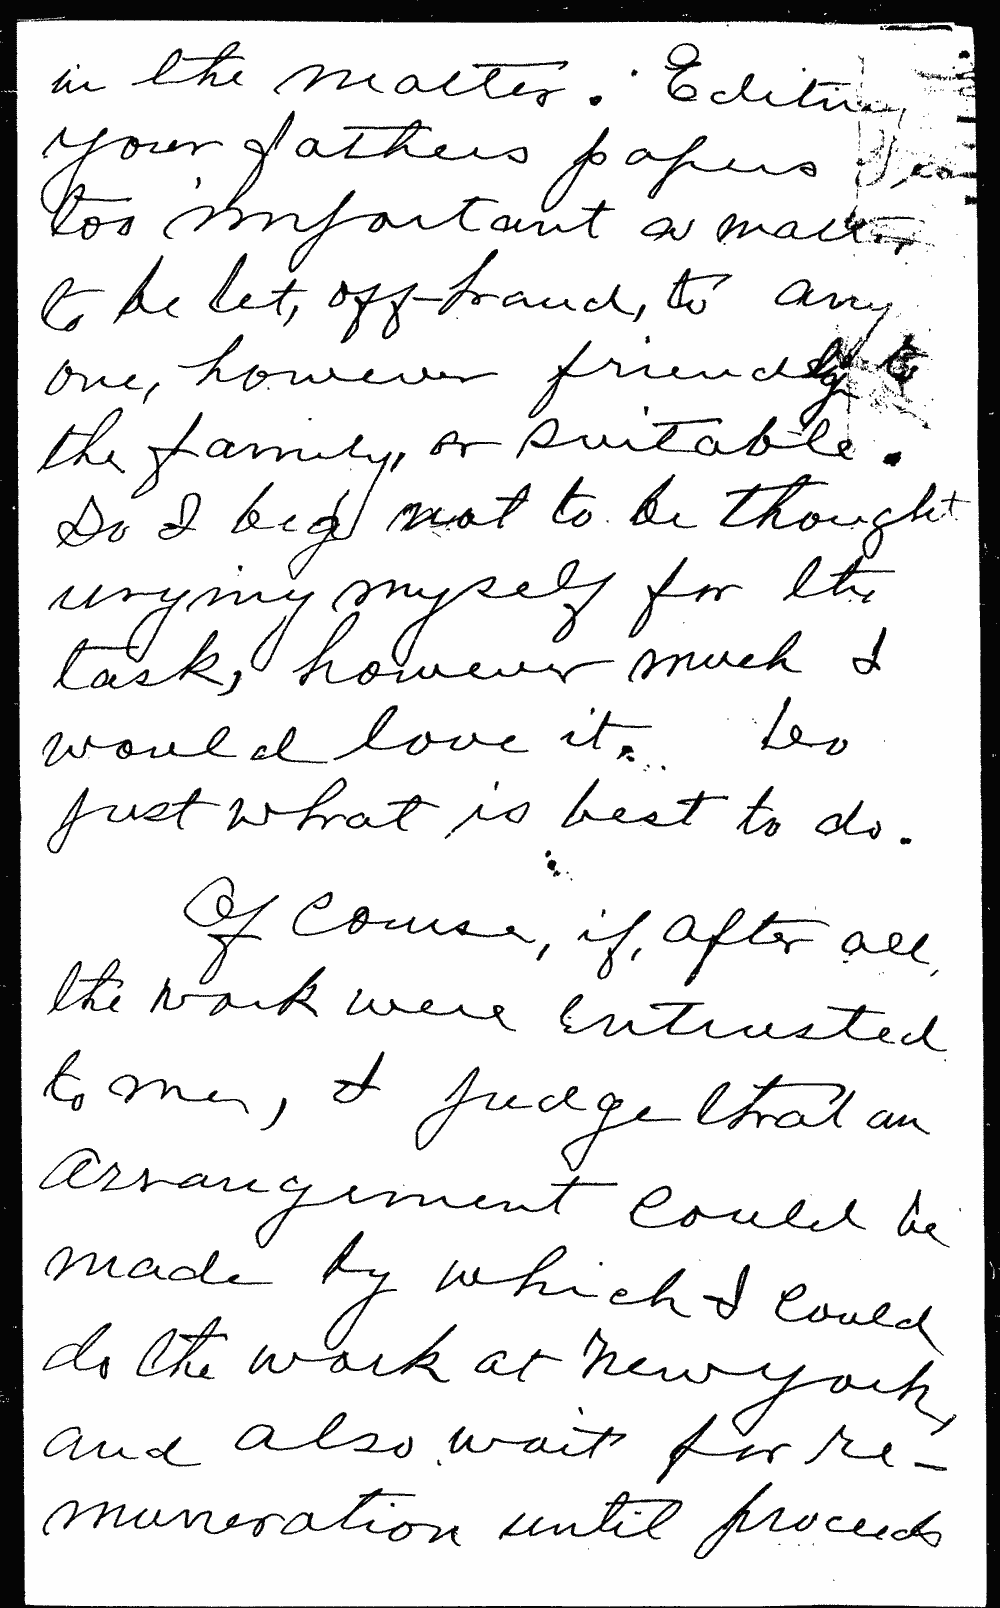 in the matter. Editing
your fathers papers is
too important a matter
to be let, off-hand, to any
one, however friendly to
the family, or suitable.
So I beg not to be thought
urging myself for the
task, however much I
would love it. Do
just what is best to do.
Of course, if, after all,
the work were entrusted
to me, I judge that an
arrangement could be
made by which I could
do the work at New York,
and also wait for re-
muneration until proceeds